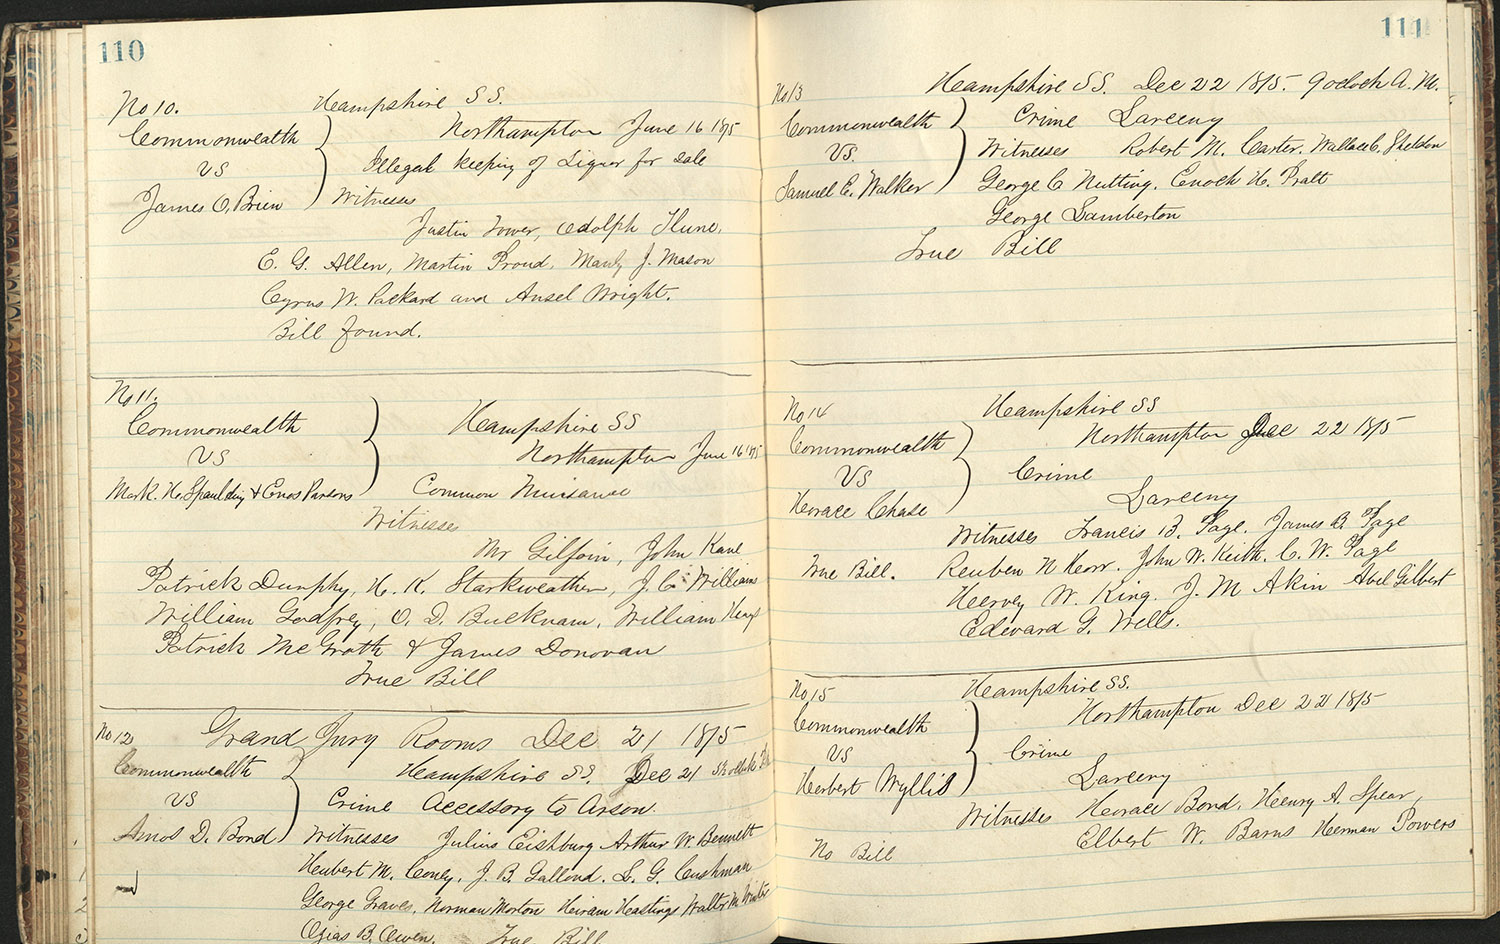 110
No 10. Hampshire SS.
Commonwealth Northampton June 16 1875
VS Illegal Keeping of Liquor for Sale
James O. Brien Witnesses
Justin Tower, Adolph
E. G. Allen, Martin Proud, Manly J. Mason
Cyrus W. Packard and Ansel Wright.
Bill Found.
No 11.
Commonwealth Hampshire SS
VS Northampton June 16 1875
Mark. H. Spaulding & Enos Parsons Common Nuisance
Witnesses
Mr Gilfoin, John Kane
Patrick Dunphy, H. K. Starkweather, J. C. Williams
William Godfrey, O. D. Bucknam, William Hays
Patrick McGrath & James Donovan
True Bill
No 12 Grand Jury Rooms Dec 21 1875
Commonwealth Hampshire SS. Dec 21
VS Crime Accessory to Arson.
Amos D. Bond Witnesses Julius Eishburg Arthur W. Bennett
Hubert M. Coney, J. B. Gallond. L. G. Cushman
George Graves, Norman Morton Hiram Hastings Walter M
B. Owen. True Bill
111
No 13 Hampshire SS. Dec 22 1875. 9 oclock A. M.
Commonwealth Crime Larceny
VS. Witnesses Robert M. Carter. Wallace C. Sheldon
Samuel E. Walker George C Nutting. Enoch H. Pratt
George Lamberton
True Bill
No 14 Hampshire SS
Commonwealth Northampton Dec 22 1875
VS Crime
Horace Chase Larceny
Witnesses Francis B. Page. James B. Page
True Bill. Reuben N Kerr. John W. Keith. C. W. Page
Hervey W. King. J. M Akin Abel Gilbert
Edward G. Wells.
No 15 Hampshire SS.
Commonwealth Northampton Dec 22 1875
VS Crime
Herbert Wyllis Larceny
Witnesses Horace Bond, Henry A. Spear,
No Bill Elbert W. Barns Herman Powers